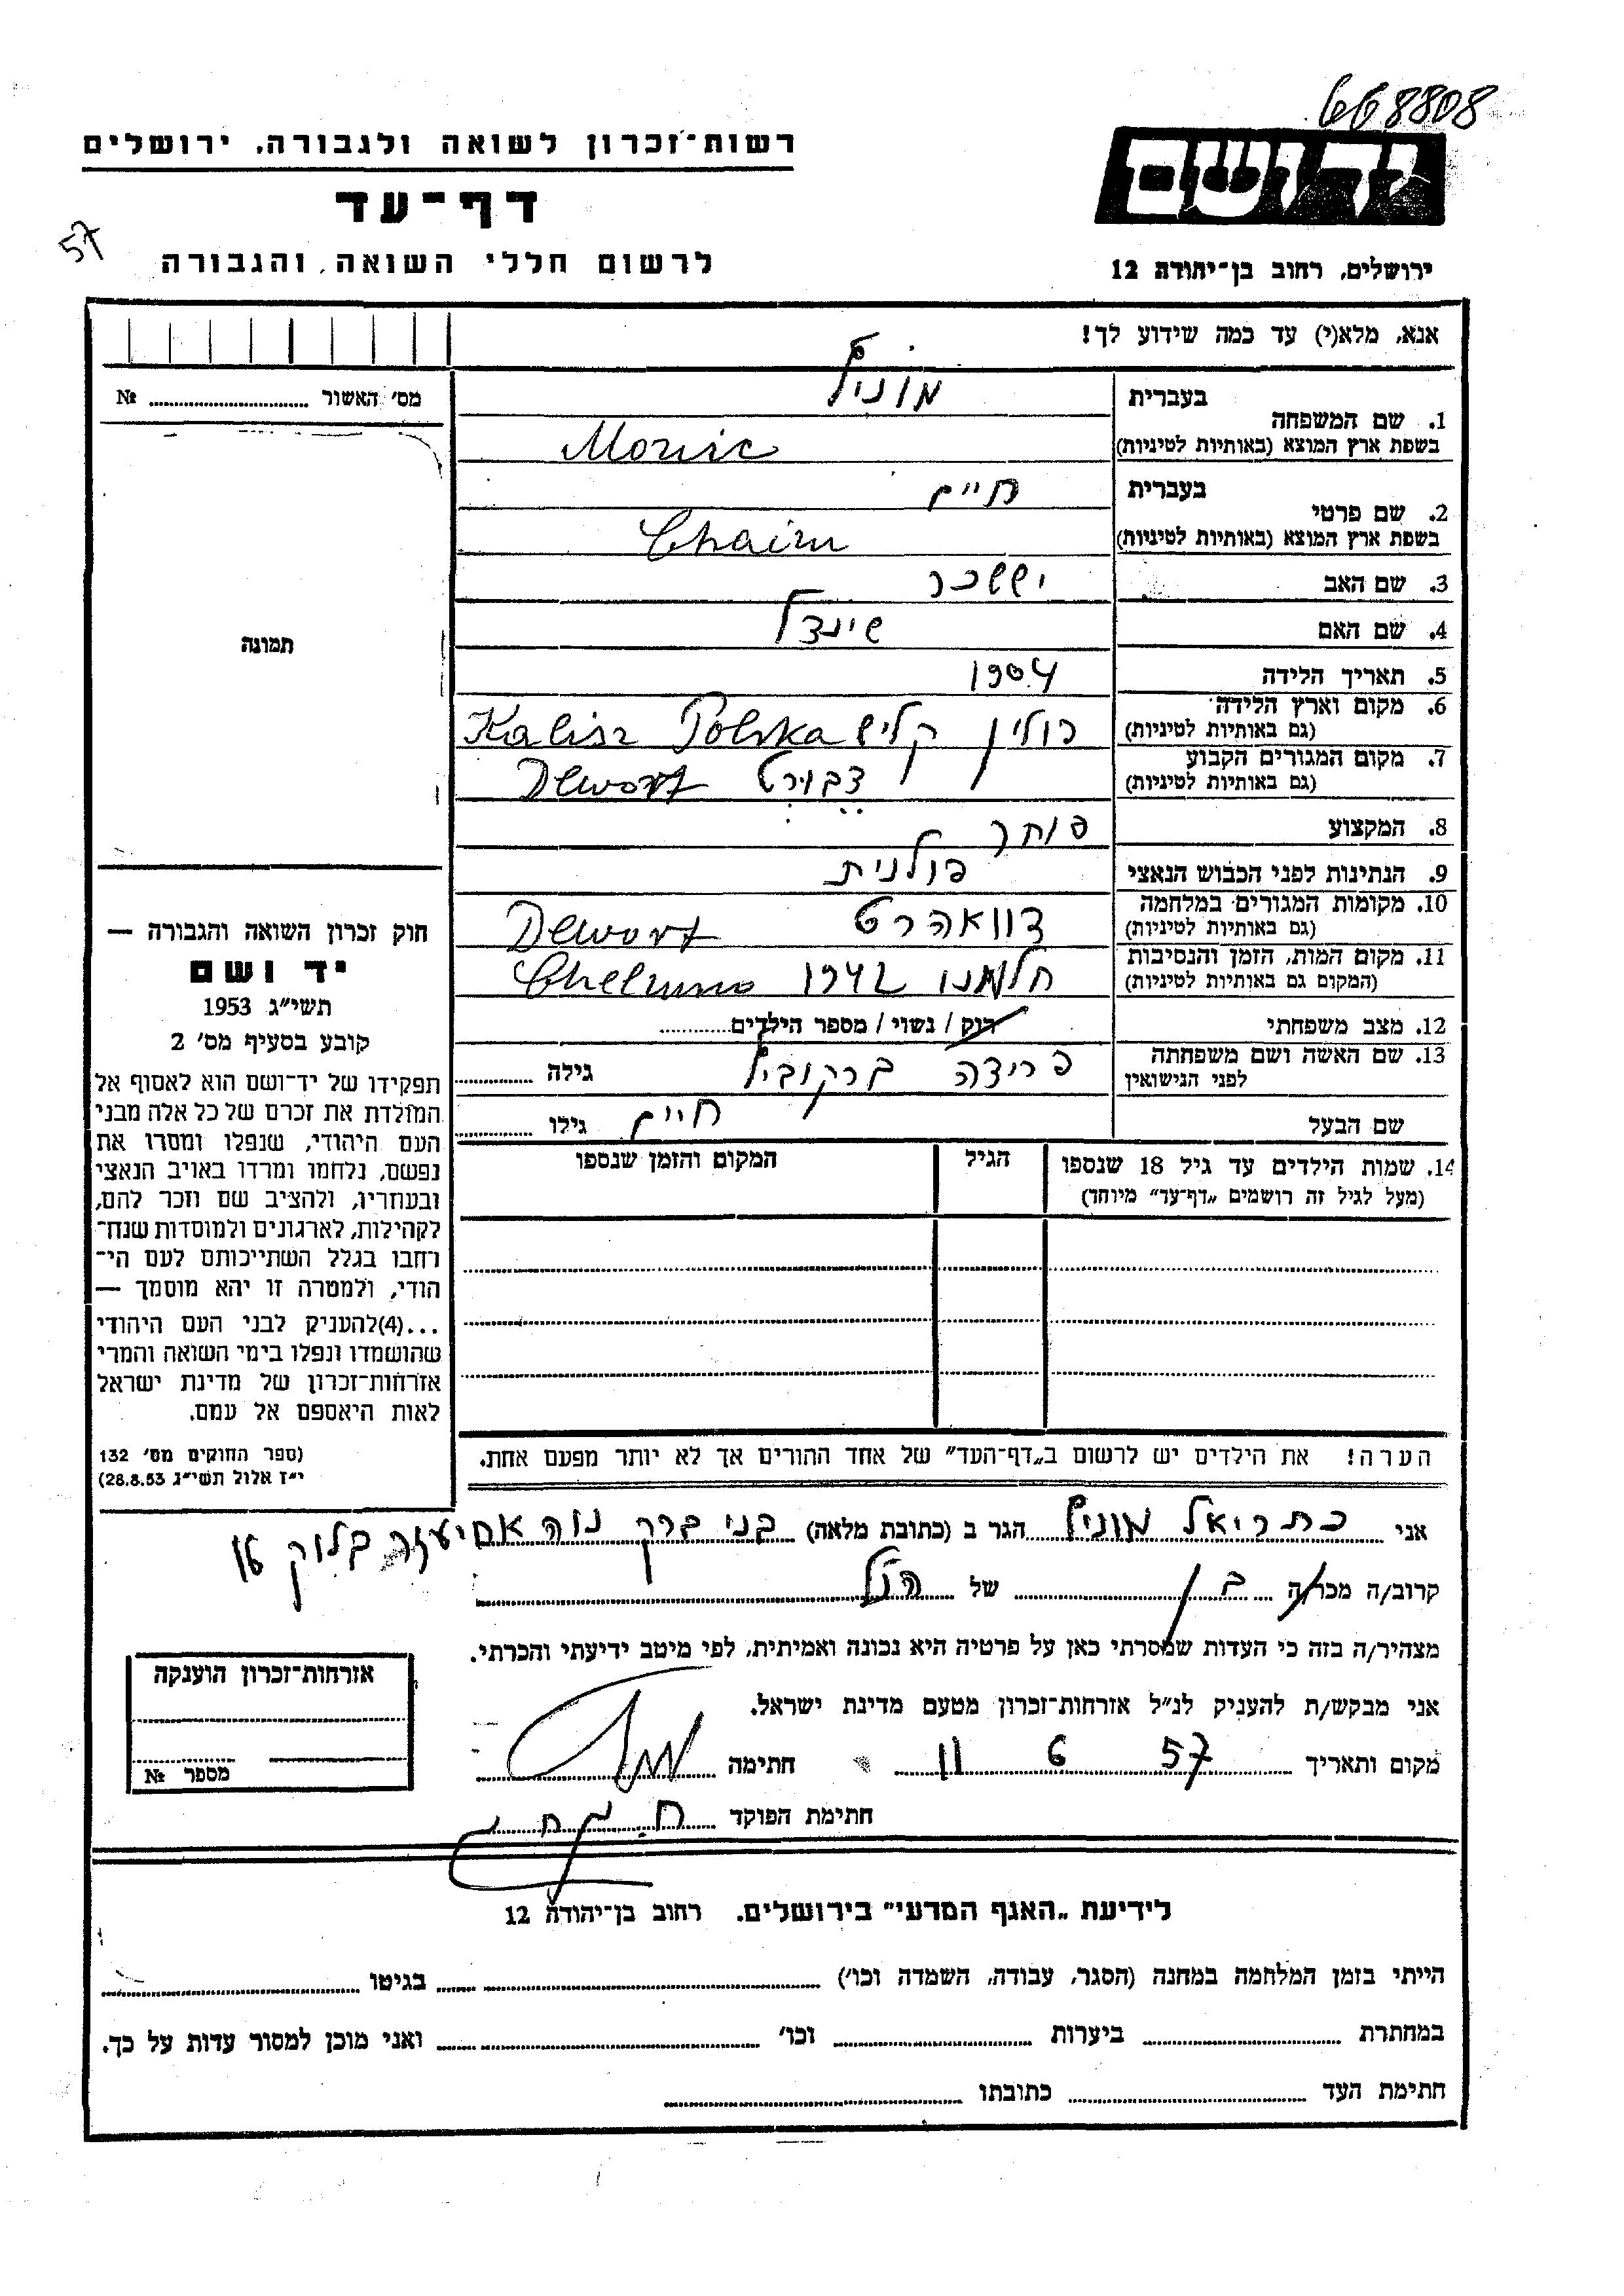 668808
רשות־זכרון לשואה ולגבורה, ירושלים
יד ושם
דף־עד
57
לרשום חללי השואה והגבורה
ירושלים, רחוב בן־יהודה 12
אנא, מלא(י) עד כמה שידוע לך!
מס' האשור № 
בעברית
1. שם המשפחה
בשפת ארץ המוצא (באותיות לטיניות)
בעברית חיים
2. שם פרטי
בשפת ארץ המוצא (באותיות לטיניות) Chaim
3. שם האב יששכר
4. שם האם שינדל
תמונה
5. תאריך הלידה 1904
6. מקום וארץ הלידה פולין קליש Kalisz Polska
(גם באותיות לטיניות)
7. מקום המגורים הקבוע Dewort
(גם באותיות לטיניות)
8. המקצוע סוחר
9. הנתינות לפני הכבוש הנאצי פולנית
10. מקומות המגורים במלחמה דוואהרט Dewort
(גם באותיות לטיניות)
11. מקום המות, הזמן והנסיבות חלמנו 1942 Chelmno
(המקום גם באותיות לטיניות)
12. מצב משפחתי רוק / נשוי / מספר הילדים
13. שם האשה ושם משפחתה
לפני הנישואין גילה
שם הבעל חיים גילו
14. שמות הילדים עד גיל 18 שנספו הגיל המקום והזמן שנספו
(מעל לגיל זה רושמים „דף־עד” מיוחד)
חוק זכרון השואה והגבורה —
יד ושם
תשי״ג 1953
קובע בסעיף מס' 2
תפקידו של יד־ושם הוא לאסוף אל
המולדת את זכרם של כל אלה מבני
העם היהודי, שנפלו ומסרו את
נפשם, נלחמו ומרדו באויב הנאצי
ובעוזריו, ולהציב שם וזכר להם,
לקהילות, לארגונים ולמוסדות שנח־
רחבו בגלל השתייכותם לעם הי־
הודי, ולמטרה זו יהא מוסמך —
...(4)להעניק לבני העם היהודי
שהושמדו ונפלו בימי השואה והמרי
אזרחות־זכרון של מדינת ישראל
לאות היאספם אל עמם.
(ספר החוקים מס' 132
י״ז אלול תשי״ג 28.8.53)
הערה! את הילדים יש לרשום ב„דף־העד” של אחד ההורים אך לא יותר מפעם אחת.
אני כתריאל הגר ב (כתובת מלאה) בני ברק נוה אחיעזר בלוק
קרוב/ה מכר/ה בן של הנ״ל
מצהיר/ה בזה כי העדות שמסרתי כאן על פרטיה היא נכונה ואמיתית, לפי מיטב ידיעתי והכרתי.
אני מבקש/ת להעניק לנ״ל אזרחות־זכרון מטעם מדינת ישראל.
מקום ותאריך 57 6 11 חתימה
חתימת הפוקד
אזרחות־זכרון הוענקה
מספר №
לידיעת „האגף המדעי” בירושלים. רחוב בן־יהודה 12
הייתי בזמן המלחמה במחנה (הסגר, עבודה, השמדה וכו') בגיטו
במחתרת ביערות וכו' ואני מוכן למסור עדות על כך.
חתימת העד כתובתו